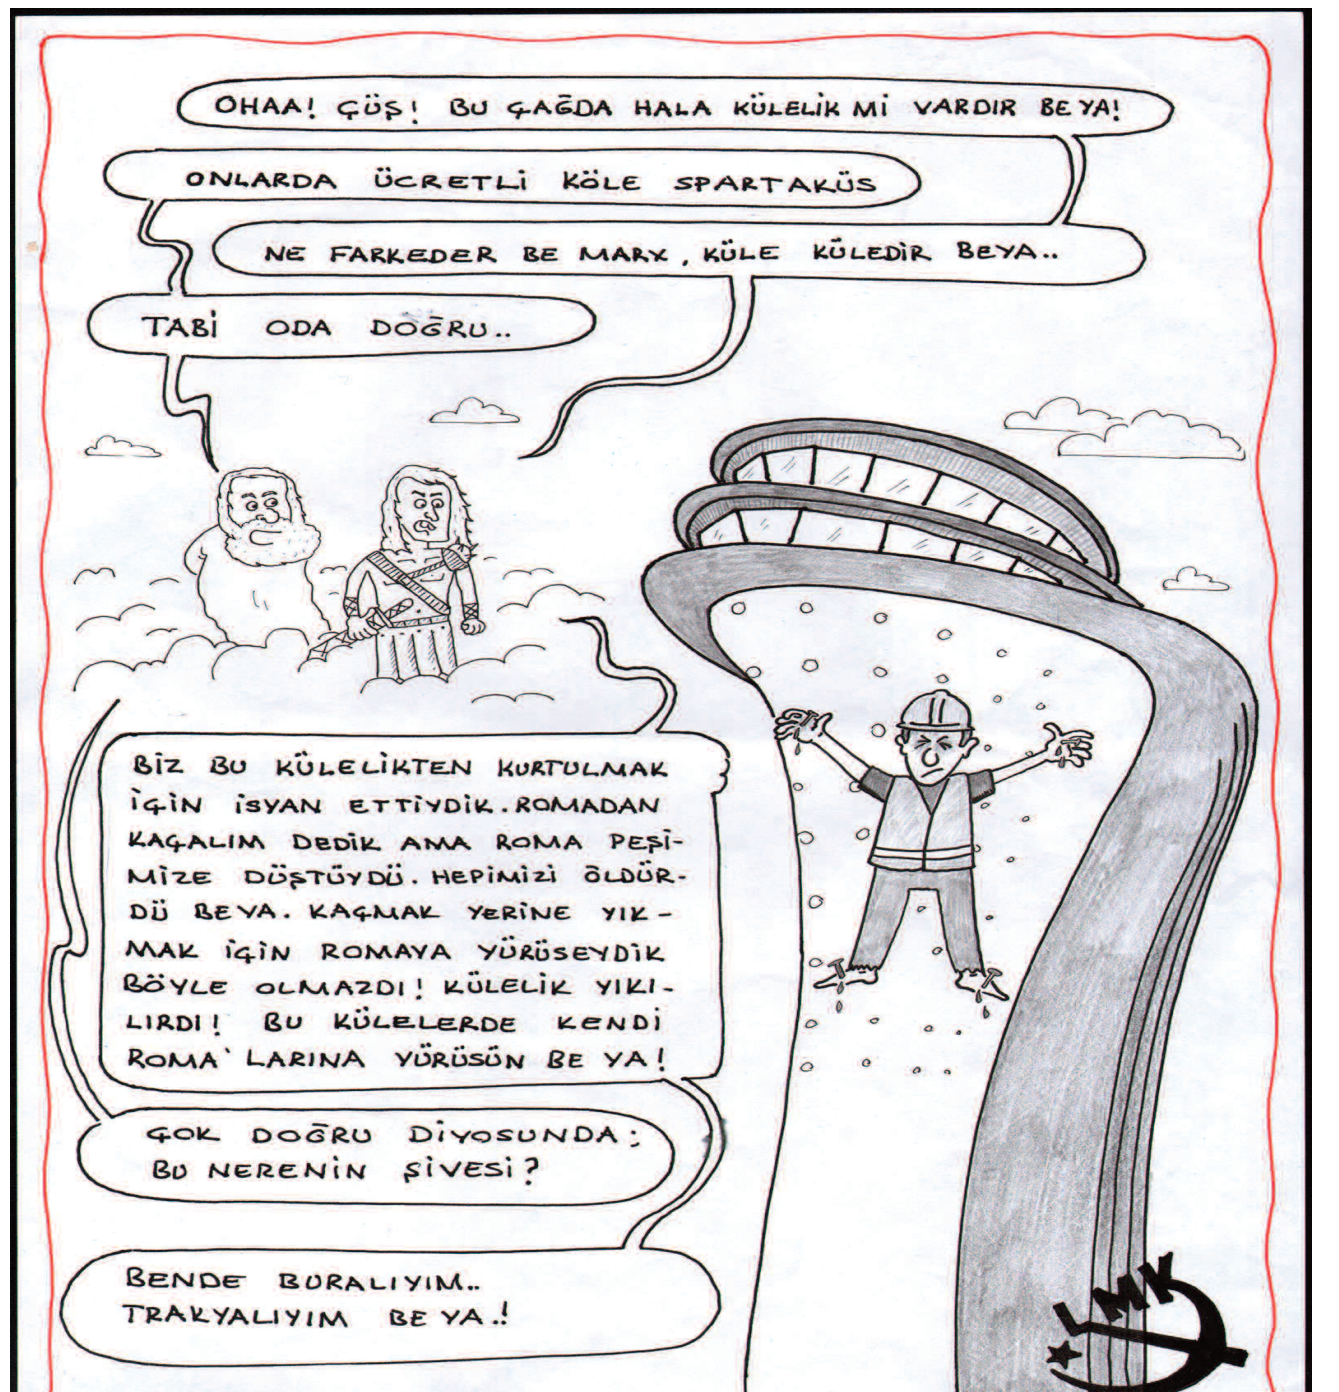 OHAA! ÇÜŞ! BU ÇAĞDA HALA KÜLELİK Mİ VARDIR BE YA!
ONLARDA ÜCRETLİ KÖLE SPARTAKÜS
NE FARKEDER BE MARX, KÜLE KÜLEDİR BEYA..
TABİ ODA DOĞRU..
BİZ BU KÜLELİKTEN KURTULMAK
İÇİN İSYAN ETTİYDİK. ROMADAN
KAÇALIM DEDİK AMA ROMA PEŞİ-
MİZE DÜŞTÜYDÜ. HEPİMİZİ ÖLDÜR-
DÜ BEYA. KAÇMAK YERİNE YIK-
MAK İÇİN ROMAYA YÜRÜSEYDİK
BÖYLE OLMAZDI! KÜLELİK YIKI-
LIRDI! BU KÜLELERDE KENDİ
ROMA'LARINA YÜRÜSÜN BE YA!
ÇOK DOĞRU DİYOSUNDA;
BU NERENİN ŞİVESİ?
BENDE BURALIYIM..
TRAKYALIYIM BE YA.!
LMK